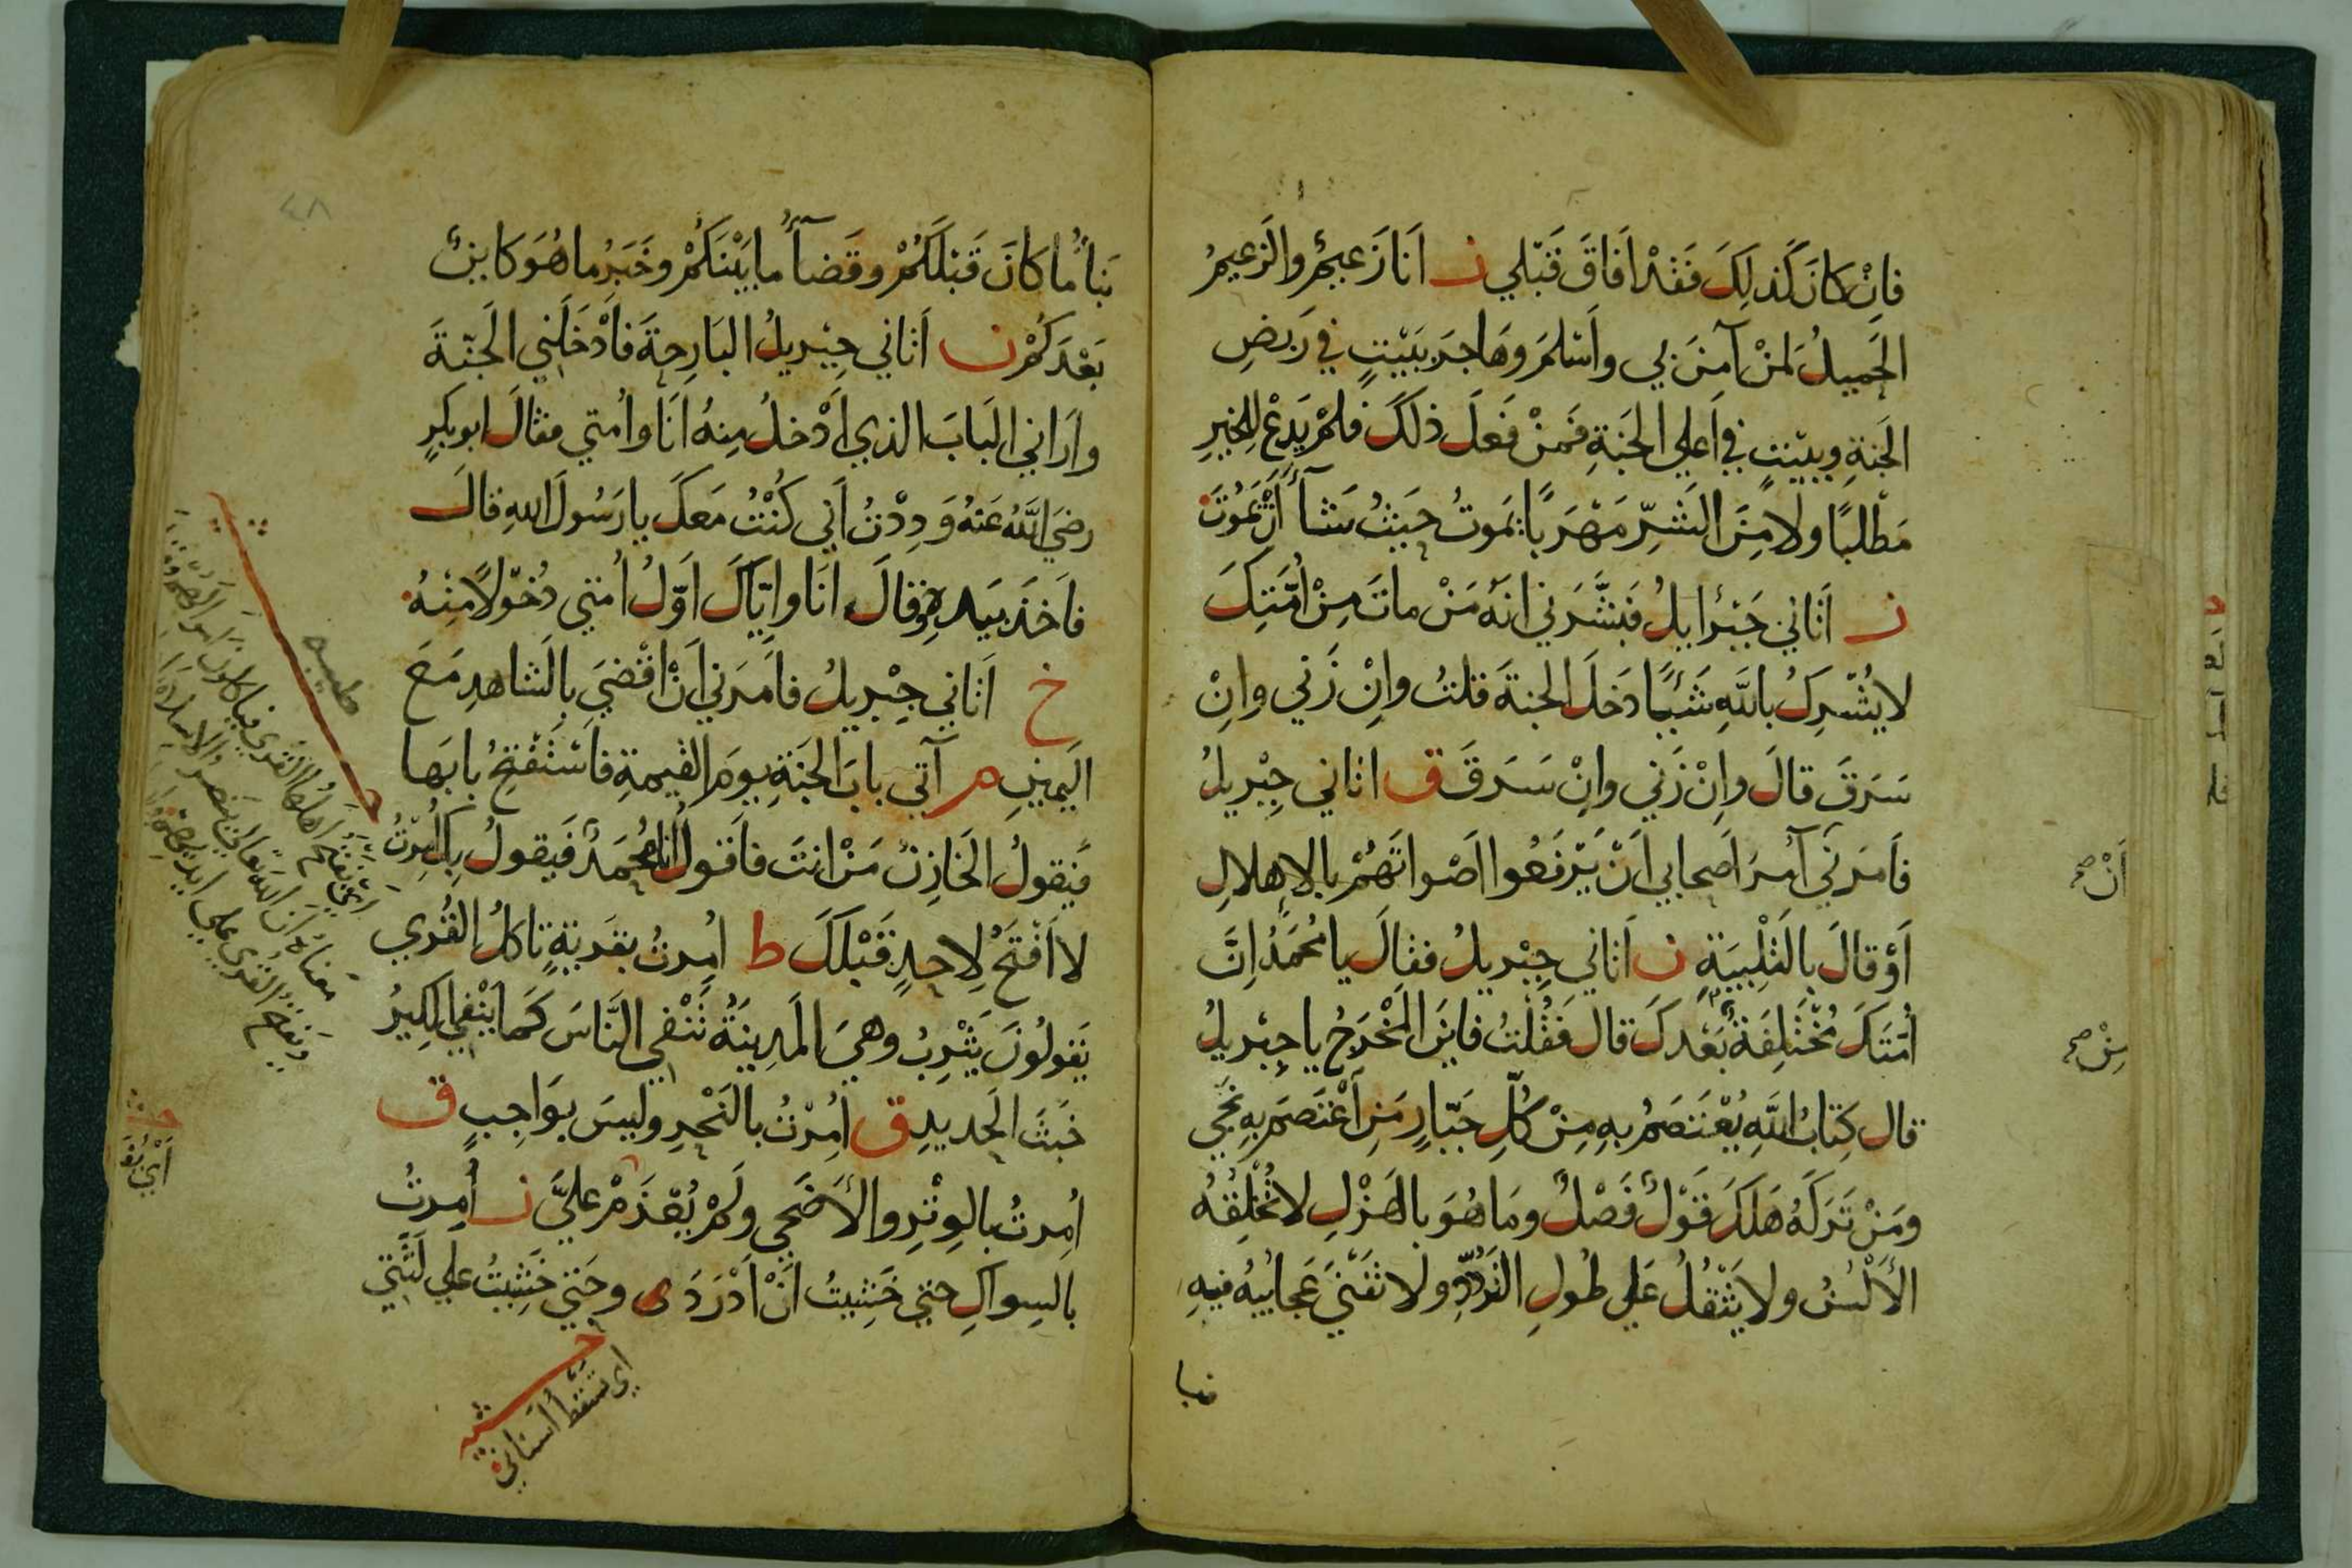 فَاِنْ كانَ كَذلِكَ فَقَدْ اَفَاقَ قَبْلي ن اَنَا زَعيمٌ والزَعيمُ
الحَميلُ لمَنْ آمنَ بي واَسْلمَ وهَاجرَ ببَيْتٍ في رَبَضِ
الجَنةِ وببَيْتٍ في اَعلي الجَنةِ فَمنْ فَعلَ ذلكَ فلمْ يَدعْ للخيرِ
مَطْلبًا ولا مِنَ الشَرِّ مَهْرَبًا يَموتُ حَيثُ شَآءَ اَنْ يَمُوتَ
ن اَتَاني جَبْرَايلُ فبَشَّرَني انهُ مَنْ ماتَ مِنْ اُمَّتِكَ
لا يُشْركُ باللّهِ شَيْئًا دَخلَ الجنةَ قلتُ وانْ زَني وانْ
سَرقَ قالَ وانْ زَني وانْ سَرقَ ق اتاني جِبْريلُ
فاَمرَني آمُرَ اَصحابي اَنْ يَرْفَعُوا اَصْواتَهُمْ بالاِهلالِ
اَنْ صح
اَوْ قالَ بالتَلْبيَةِ ن اَتاني جِبْريلُ فقالَ يا مُحَمَّدُ اِنَّ
اُمَّتكَ مُخْتَلِفَةٌ بَعْدكَ قال فَقُلْتُ فاينَ المَخْرَجُ يا جِبْريلُ
مِنْ صح
قال كِتابُ اللّهِ يُعْتَصَمُ بهِ مِنْ كُلِّ جَبّارٍ مَنِ اعْتَصَمَ بهِ نَجي
ومَنْ تَرَكَهُ هَلكَ قَوْلٌ فَصْلٌ ومَا هُوَ بالهَزْلِ لا تُخْلِقُهُ
الاَلْسُنُ ولا يَثْقُلُ عَلي طُولِ الرَّدِّ ولا تفْنَي عَجائبُهُ فيهِ
نبا
٤٨
نَبأُ ما كانَ قَبْلَكُمْ وقَضآءُ ما بَيْنَكُمْ وخَبَرُ ما هُوَ كائنٌ
بَعْدَكُمْ ن اَتاني جِبْريلُ البَارِحةَ فاَدْخَلَني الجَنّةَ
واَرَاني البَابَ الذي اَدْخلُ مِنهُ اَنَا واُمتي فقالَ ابو بكرٍ
رضيَ اللّهُ عَنهُ وَدِدْتُ اَني كُنْتُ مَعكَ يا رَسُولَ اللهِ قالَ
فاَخذَ بيَدهِ وقالَ انَا وايّاكَ اَوّلُ اُمتي دُخولًا مِنْهُ
خ اَتاني جِبْريلُ فاَمرَني اَنْ اقْضيَ بالشاهدِ مَعَ
اليَمينِ م آتي بابَ الجَنّةِ يومَ القيمةِ فاَسْتَفْتِحُ بابَها
فيَقولُ الخَازنُ مَنْ انتَ فاَقولُ انَا مُحمَدٌ فَيقولُ بكَ اُمِرْتُ
لا اَفْتحُ لاحدٍ قَبْلكَ ط اُمِرتُ بقَريةٍ تاكلُ القُري
يَقولُونَ يَثْربُ وهيَ المَدينَةُ تَنْفي النَّاسَ كَما يَنْفي الكِيرُ
خَبثَ الحَديدِ ق اُمِرْتُ بالنَحْرِ وليسَ بوَاجبٍ ق
اُمِرتُ بالوِتْرِ والاَضْحي ولَمْ يُعْزَمْ عليَّ ن اُمِرتُ
بالسِواكِ حتي خَشِيتُ اَنْ اَدْرَدَ ى وحَتي خَشِيتُ علي لَثَتي
اي يَفْتحُ اَهلُها القُري
معناهُ اَنَّ اللهَ
ويَفتحُ القُري علي ايديهم
اي تسقط اسناني